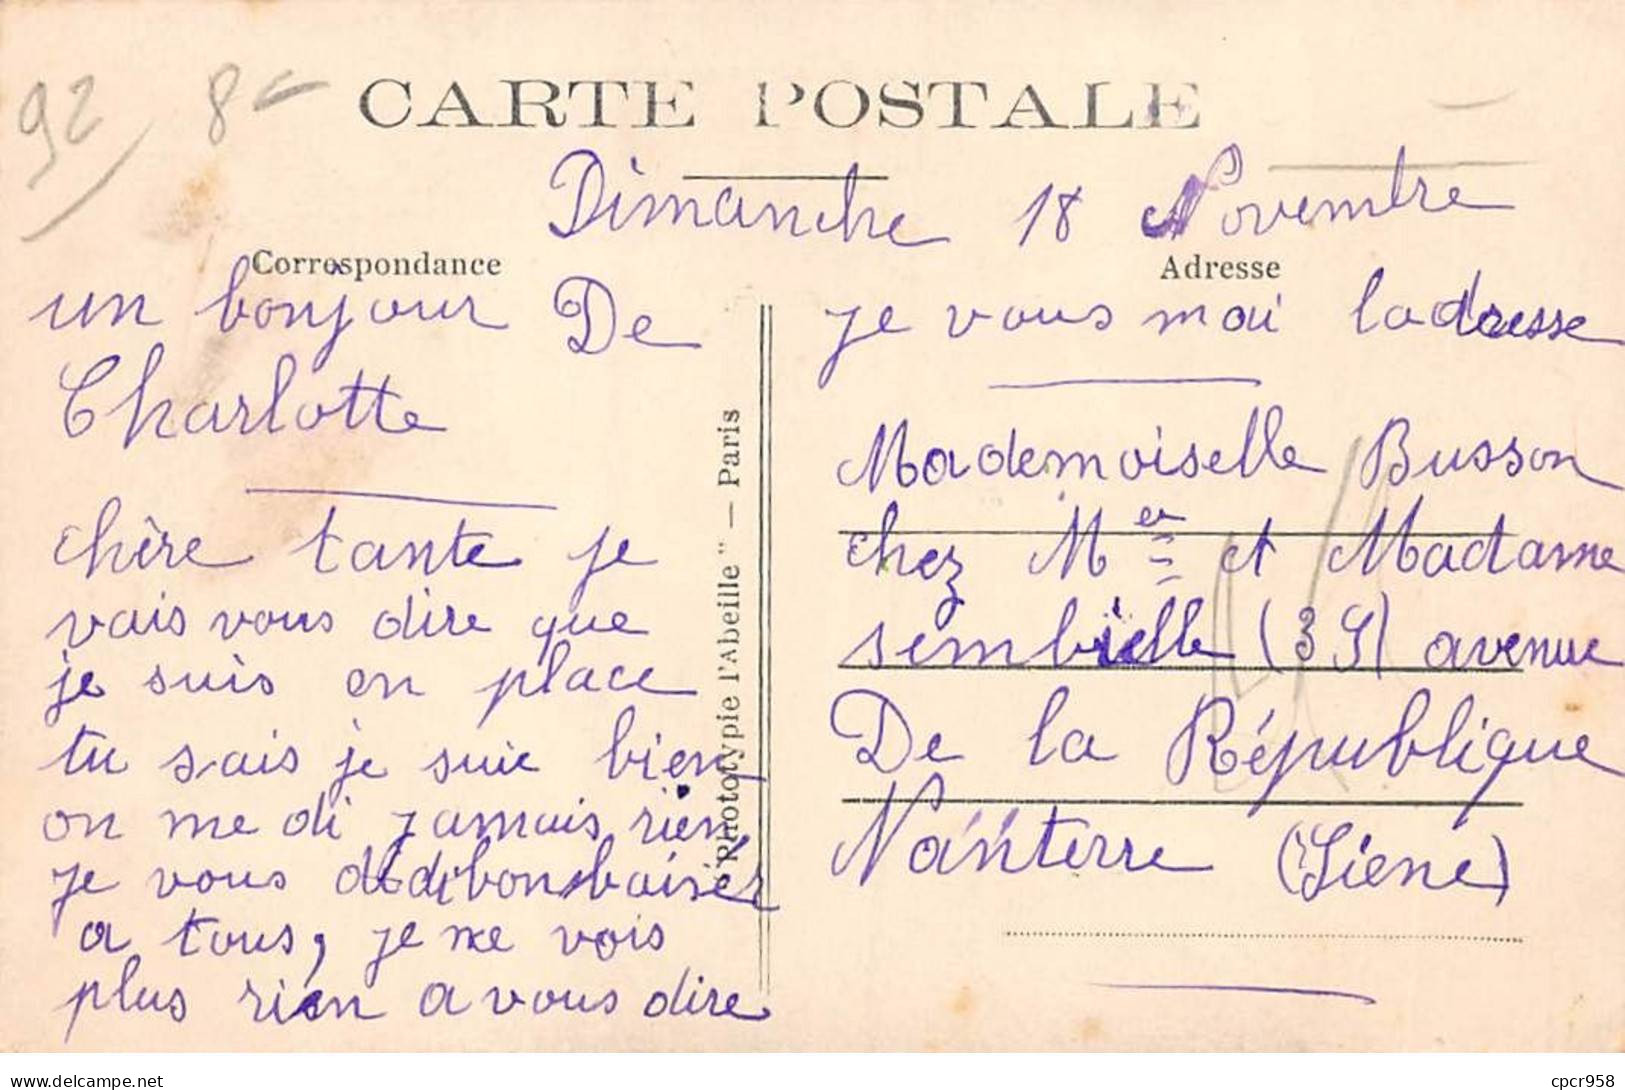 92 8
CARTE POSTALE
Dimanche 18 Novembre
Correspondance
un bonjour De
Charlotte
chère tante je
vais vous dire que
je suis en place
tu sais je suie bien
on me di jamais rien
je vous baiser
a tous, je ne vois
plus rien a vous dire
"Phototypie l'Abeille" — Paris
Adresse
je vous mai ladresse
Mademoiselle Busson
chez Mer et Madame
sembielle (39) avenue
De la République
Nanterre (Siene)
cpcr958